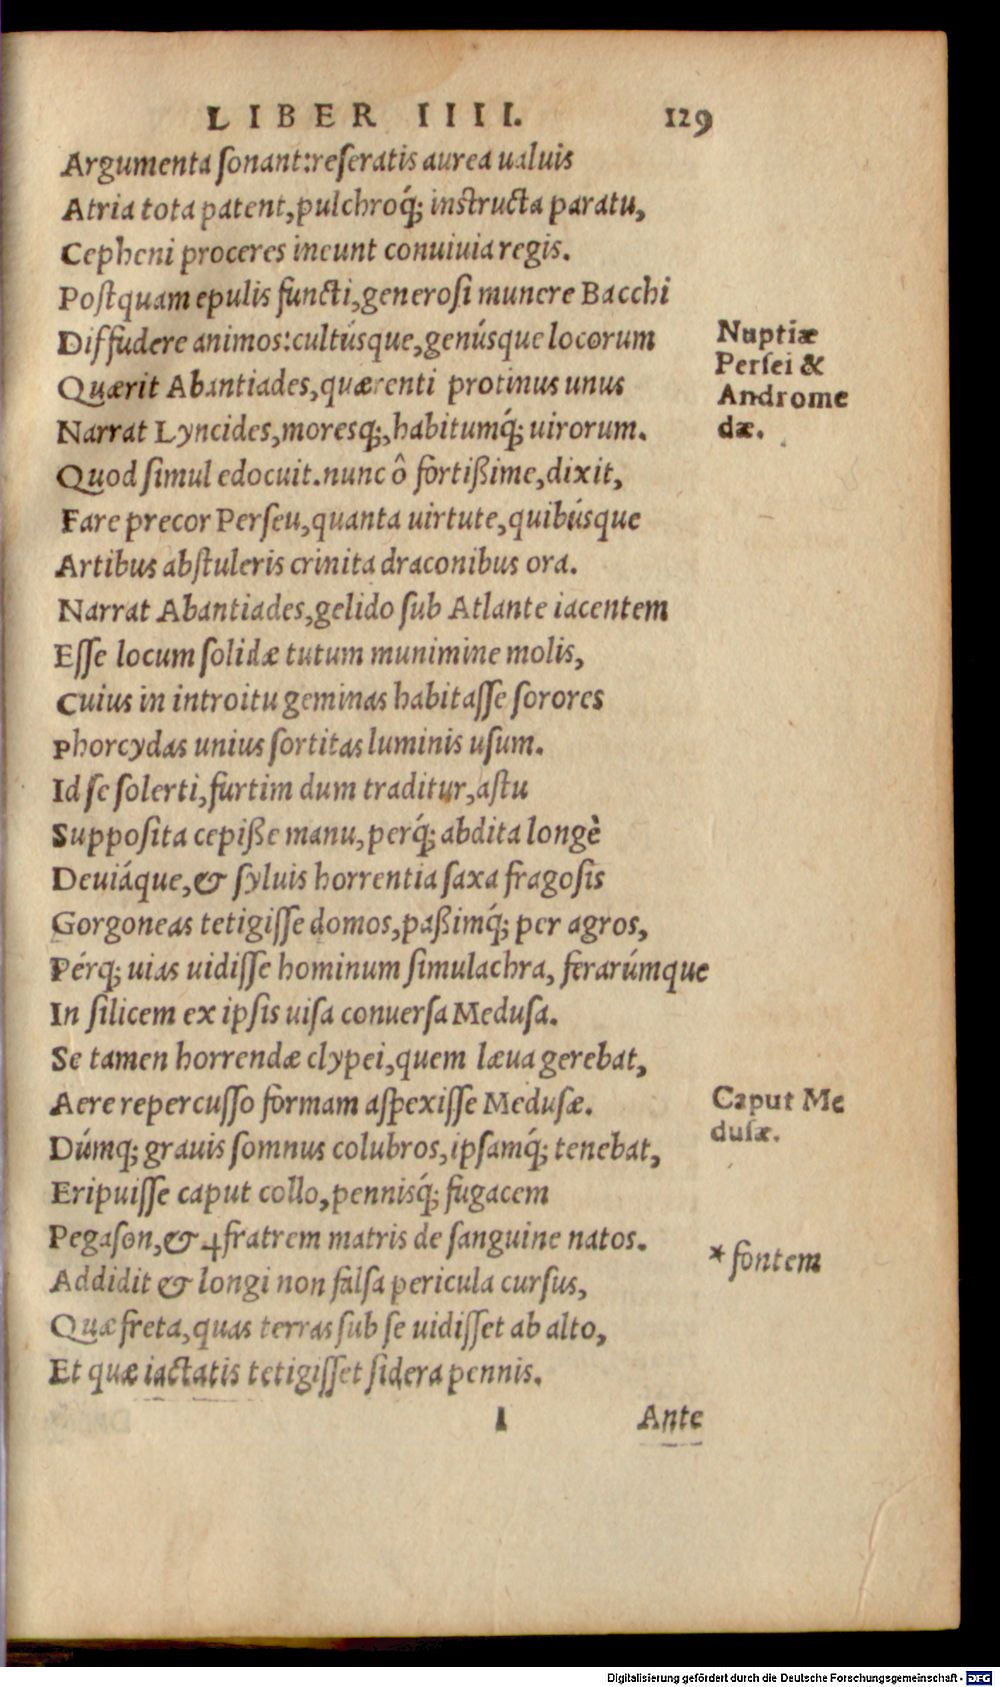 LIBER IIII. 129
Argumenta ſonant:reſeratis aurea ualuis
Atria tota patent,pulchroq́; instructa paratu,
Cepheni proceres ineunt conuiuia regis.
Poſtquam epulis functi,generoſi munere Bacchi
Diffudere animos:cultúsque,genúsque locorum
Nuptiæ
Perſei &
Androme
dæ.
Quærit Abantiades,quærenti protinus unus
Narrat Lyncides,moresq;,habitumq́; uirorum.
Quod ſimul edocuit.nunc ô fortißime,dixit,
Fare precor Perſeu,quanta uirtute,quibúsque
Artibus abſtuleris crinita draconibus ora.
Narrat Abantiades,gelido ſub Atlante iacentem
Eſſe locum ſolidæ tutum munimine molis,
Cuius in introitu geminas habitaſſe ſorores
Phorcydas unius ſortitas luminis uſum.
Id ſe ſolerti,furtim dum traditur,aſtu
Suppoſita cepiße manu,perq́; abdita longè
Deuiáque,& ſyluis horrentia ſaxa fragoſis
Gorgoneas tetigiſſe domos,paßimq́; per agros,
Pérq; uias uidiſſe hominum ſimulachra, ferarúmque
In ſilicem ex ipſis uiſa conuerſa Meduſa.
Se tamen horrendæ clypei,quem læua gerebat,
Aere repercuſſo formam aſpexiſſe Meduſæ.
Caput Me
duſæ.
Dúmq; grauis ſomnus colubros,ipſamq́; tenebat,
Eripuiſſe caput collo,pennisq́; fugacem
Pegaſon,& ⁴fratrem matris de ſanguine natos.
*fontem
Addidit & longi non falſa pericula curſus,
Quæ freta,quas terras ſub ſe uidiſſet ab alto,
Et quæ iactatis tetigiſſet ſidera pennis.
I Ante
Digitalisierung gefördert durch die Deutsche Forschungsgemeinschaft - DFG